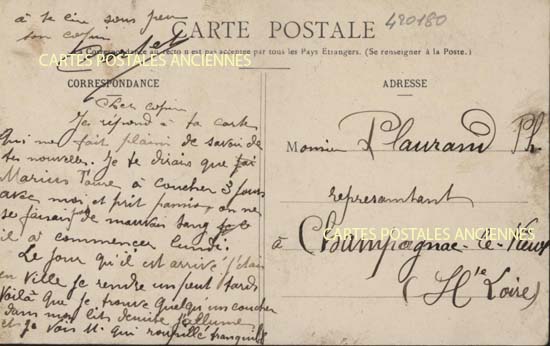 à te lire sous peu
ton copin
CARTE POSTALE
420180
La Correspondance au recto n'est pas acceptée par tous les Pays Etrangers. (Se renseigner à la Poste.)
CARTES POSTALES ANCIENNES
CORRESPONDANCE
Cher copin
Je répond à ta carte
qui me fait plaisir de savoir de
tes nouvelles. Je te dirais que j'ai
Marius à coucher 3 jours
avec moi, et
se faisait de mauvais sang
il a commencer lundi.
Le jour qu'il est arrivé j'étais
en ville je rendre un peut tard
Voilà que je trouve quelqu'un coucher
dans mon lits j'allume
et je vois M. qui roupillé tranquil
ADRESSE
Monsieur Plaurand Ph
representant
CARTES POSTALES ANCIENNES
à Champagnac-le-Vieux
(Hte Loire)
CARTES POSTALES ANCIENNES